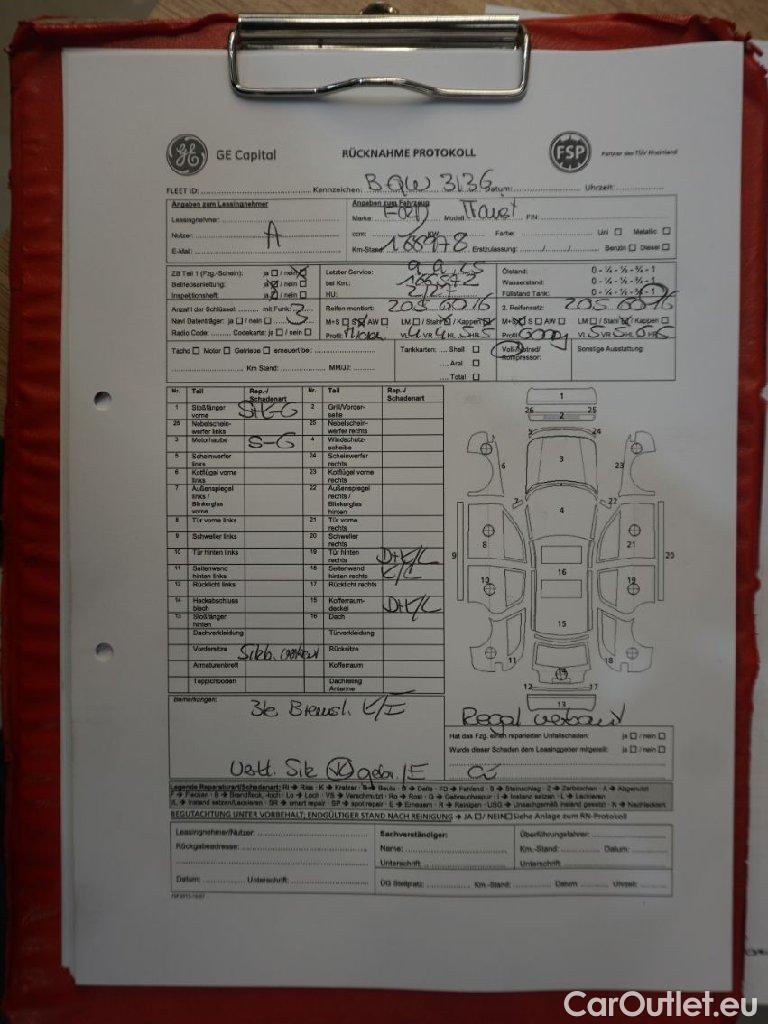 GE Capital
RÜCKNAHME PROTOKOLL
FSP
Partner des TÜV Rheinland
FLEET ID: Kennzeichen: BQW 3136 Datum: Uhrzeit:
Angaben zum Leasingnehmer
Angaben zum Fahrzeug
Leasingnehmer:
Name: Ford Modell: P/N:
Nutzer: A
ccm: KW Farbe: Uni □ Metallic □
E-Mail:
Km-Stand: 166978 Erstzulassung: Benzin □ Diesel □
ZB Teil 1 (Fzg.-Schein): ja □ / nein
Letzter Service:
Ölstand: 0 - ¼ - ½ - ¾ - 1
Betriebsanleitung: ja / nein □
bei Km.:
Wasserstand: 0 - ¼ - ½ - ¾ - 1
Inspektionsheft ja / nein □
HU:
Füllstand Tank: 0 - ¼ - ½ - ¾ - 1
Anzahl der Schlüssel: mit Funk: 3
Reifen montiert: 205 60 16
2. Reifensatz: 205 60 16
Navi Datenträger: ja □ / nein □
M+S □ S AW □ LM □ / Stahl / Kappen
M+S S □ AW □ LM □ / Stahl / Kappen □
Radio Code: Codekarte: ja □ / nein □
Profil: VL 4 VR 4 HL 5 HR 5
Profil: VL 5 VR 5 HL 6 HR 6
Tacho □ Motor □ Getriebe □ erneuerbe:
Tankkarten: ... Shell □
Voll-/Notrad/
Kompressor:
Sonstige Ausstattung
... Aral □
Km Stand: MM/JJ:
... Total □
Nr. Teil Rep./ Schadenart Nr. Teil Rep./ Schadenart
1 Stoßfänger vorne 2 Grill/Vorderseite
26 Nebelscheinwerfer links 25 Nebelscheinwerfer rechts
3 Motorhaube S-G 4 Windschutzscheibe
5 Scheinwerfer links 24 Scheinwerfer rechts
6 Kotflügel vorne links 23 Kotflügel vorne rechts
7 Außenspiegel links / Blinkerglas vorne 22 Außenspiegel rechts / Blinkerglas hinten
8 Tür vorne links 21 Tür vorne rechts
9 Schweller links 20 Schweller rechts
10 Tür hinten links 19 Tür hinten rechts D+K/L
11 Seitenwand hinten links 18 Seitenwand hinten rechts K/L
12 Rücklicht links 17 Rücklicht rechts
14 Heckabschluss blech 15 Kofferraumdeckel D+K/L
13 Stoßfänger hinten 16 Dach
Dachverkleidung Türverkleidung
Vordersitze Rücksitze
Armaturenbrett Kofferraum
Teppichboden Dachhimmel Antenne
1
26 25
2
5 24
3
6 23
7 22
4
8 21
9 20
10 16 19
15
11 18
14
12 17
13
Bemerkungen:
Regal verbaut
Hat das Fzg. einen reparierten Unfallschaden: ja □ / nein □
Wurde dieser Schaden dem Leasinggeber mitgeteilt: ja □ / nein □
Legende Reparaturart/Schadenart: RI → Riss - K → Kratzer - B → Beule - D → Delle - FD → Fehlend - S → Steinschlag - Z → Zerbrochen - A → Abgenutzt
F → Flecken - B → Brandfleck, -loch - Lo → Loch - VS → Verschmutzt - Ro → Rost - G → Gebrauchsspur - I → Instand setzen - L → Lackieren
I/L → Instand setzen/Lackieren - SR → smart repair - SP → spot repair - E → Erneuern - R → Reinigen - USG → Unsachgemäß instand gesetzt - N → Nachlackiert
BEGUTACHTUNG UNTER VORBEHALT; ENDGÜLTIGER STAND NACH REINIGUNG → JA □/ NEIN □ Siehe Anlage zum RN-Protokoll
Leasingnehmer/Nutzer:
Sachverständiger:
Überführungsfahrer:
Rückgabeadresse:
Name:
Km.-Stand: Datum:
Unterschrift
Unterschrift
Datum: Unterschrift:
ÜG Stellplatz: Km.-Stand: Datum: Uhrzeit:
CarOutlet.eu